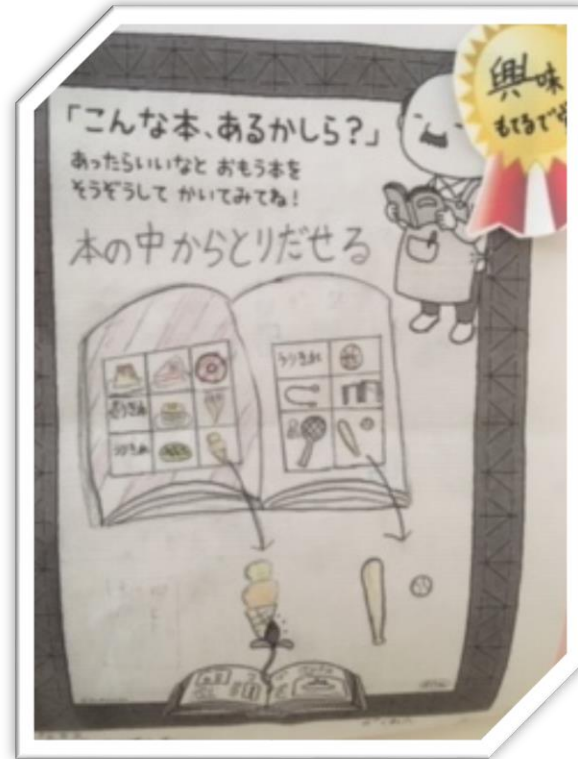 「こんな本、あるかしら？」
あったらいいなと おもう本を
そうぞうして かいてみてね！
本の中からとりだせる
興味
もてるで
うりきれ
うりきれ
うりきれ